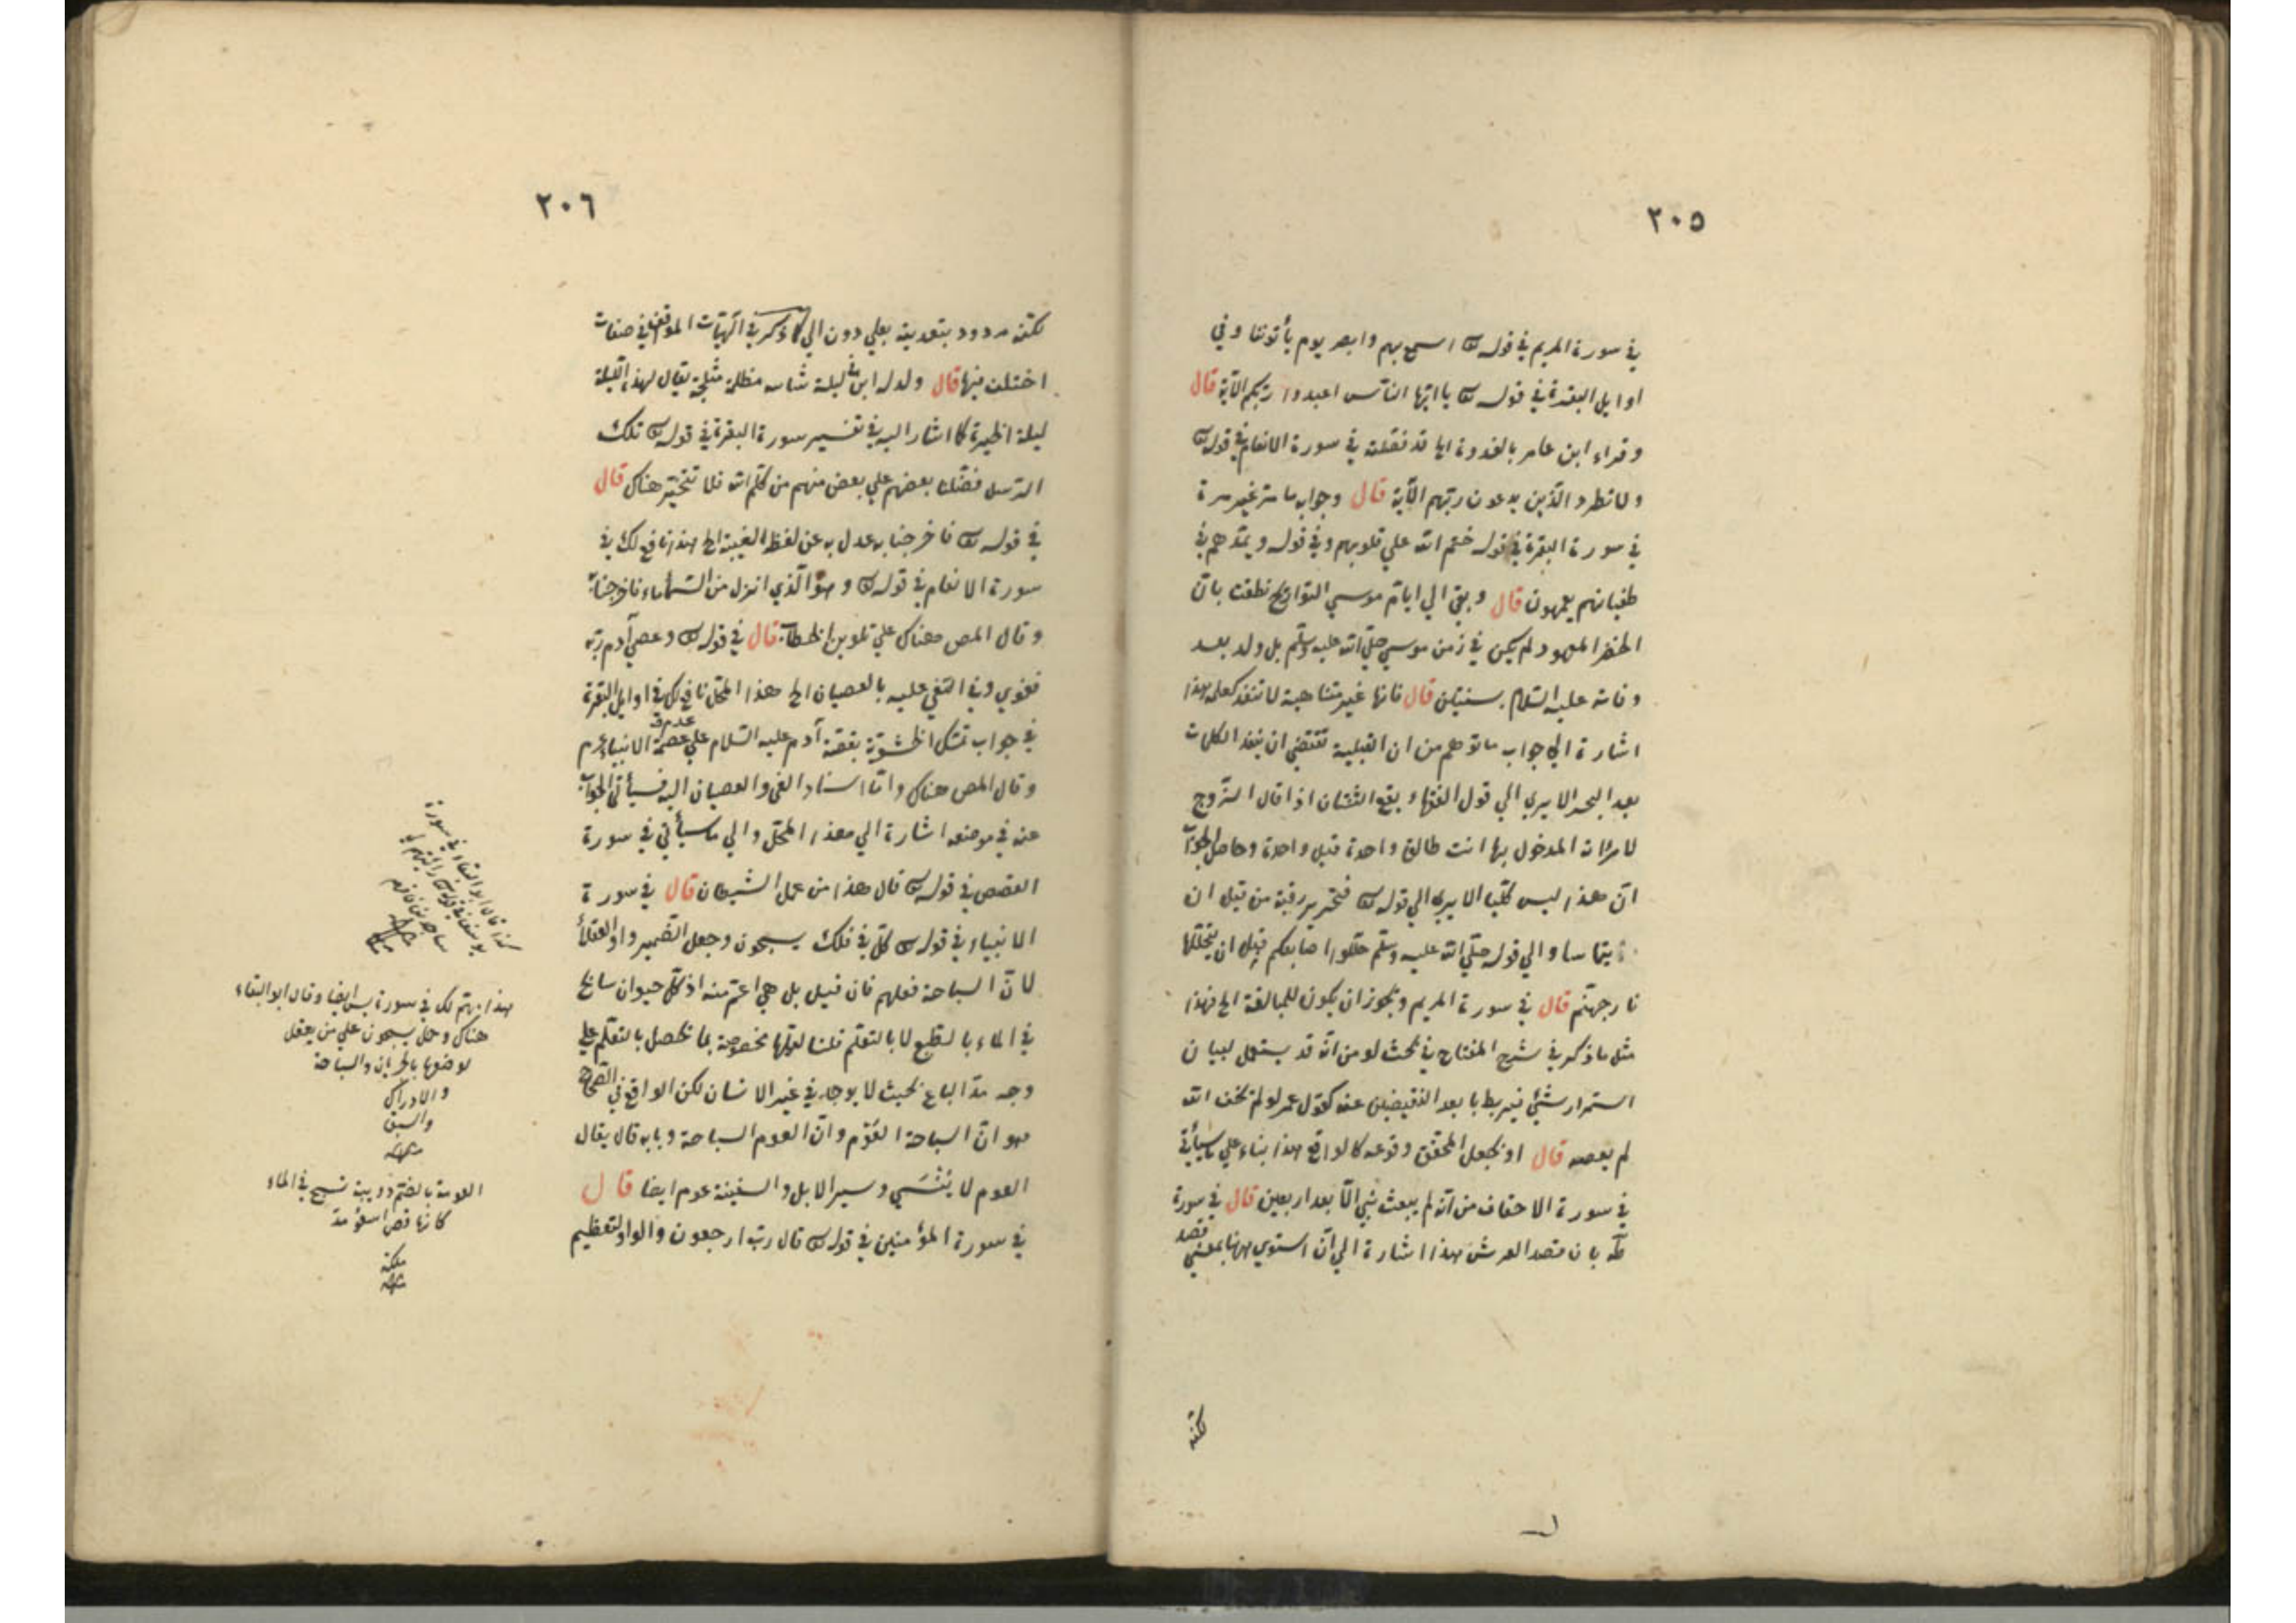 ٢٠٥
في سورة المريم في قوله تع اسمع بهم وابصر يوم يأتوننا وفي
اوايل البقرة في قوله تع يا ايّها النّاس اعبدوا ربّكم الآية قال
وقراء ابن عامر بالغدوة الخ قد نقلته في سورة الانعام في قوله تع
ولا تطرد الّذين يدعون ربّهم الآية قال وجوابه ما مرّ غير مرة
في سورة البقرة في قوله ختم الله علي قلوبهم وفي قوله ويمدّهم في
طغيانهم يعمهون قال وبقي الي ايام موسي التواريخ نطقت بان
الخضر المعهود لم يكن في زمن موسي صلّي الله عليه وسلّم بل ولد بعد
وفاته عليه السّلام بسنتين قال فانها غير متناهية لا تنفد كعلمه هذا
اشارة الي جواب ما توهم من ان القبلية تقتضي ان ينفد الكلمات
بعد البحر الا يري الي قول الفقهاء يقع الثنتان اذا قال الزّوج
لامرأته المدخول بها انت طالق واحدة قبل واحدة وحاصل الجواب
انّ هذا ليس كليّا الا يري الي قوله تع فتحرير رقبة من قبل ان
يتماسا والي قوله صلّي الله عليه وسلّم خللوا اصابعكم قبل ان يتخللها
نار جهنّم قال في سورة المريم ويجوز ان يكون للمبالغة الخ فهذا
مثل ما ذكر في شرح المفتاح في بحث لو من انّه قد يستعمل لبيان
استمرار شئ فيربط بابعد النقيضين عنه كقول عمر لو لم يخف الله
لم يعصه قال او يجعل المحقّق وقوعه كالواقع هذا بناء علي ما سيأتي
في سورة الاحقاف من انّه لم يبعث نبي الّا بعد اربعين قال في سورة
طه بان قصد العرش هذا اشارة الي انّ استوي ههنا بمعني قصد
لكنّه
٢٠٦
لكنّه مردود بتعديته بعلي دون الي كما ذكر في الهيّات المواقف في صفات
اختلف فيها قال وولد له ابن في ليلة شاتيه مظلمة مثلجة يقال لهذه الليلة
كما اشار اليه في تفسير سورة البقرة في قوله تع تلك
الرّسل فضّلنا بعضهم علي بعض منهم من كلّم الله فلا تتحيّر هناك قال
في قوله تع فاخرجنا به عدل به عن لفظ الغيبة الخ هذا نافع لك في
سورة الانعام في قوله تع وهو الّذي انزل من السّماء ماء فاخرجنا به
وقال المص هناك علي تلوين الخطاب قال في قوله تع وعصي آدم ربّه
فغوي وفي النّعي عليه بالعصيان الخ هذا المحلّ نافع لك في اوايل البقرة
في جواب تمسّك الحشويّة بقصّة آدم عليه السّلام علي عدم عصمة الانبياء
وقال المص هناك وامّا اسناد الغي والعصيان اليه فسيأتي الجواب
عنه في موضعه اشارة الي هذا المحلّ والي ما سيأتي في سورة
القصص في قوله تع قال هذا من عمل الشيطان قال في سورة
الانبياء في قوله تع كلّ في فلك يسبحون وجعل الضّمير واو العقلاء
لانّ السباحة فعلهم فان قيل بل هي اعمّ منه اذ كلّ حيوان سابح
في الماء بالطبع لا بالتعلّم قلنا لعلّها مخصوصة بما تحصل بالتعلّم علي
وجه مدّ الباع بحيث لا يوجد في غير الانسان لكن الواقع في الصّحاح
هو انّ السباحة العَوْم وانّ العوم السباحة وبابه قال يقال
العوم لا يُنْسَي وسير الابل والسفينة عوم ايضا قال
في سورة المؤمنين في قوله تع قال ربّ ارجعون والواو لتعظيم
كذا قال ابو البقاء في سورة
يوسف في قوله تع رأيتهم لي
ساجدين
هذا مهمّ لك في سورة يس ايضا وقال ابو البقاء
هناك وحمل يسبحون علي من يعقل
لوصفها بالجريان والسباحة
والادراك
والسبق
منه
العومة بالضّم دويبة تسبح في الماء
كانّها فصّ اسود